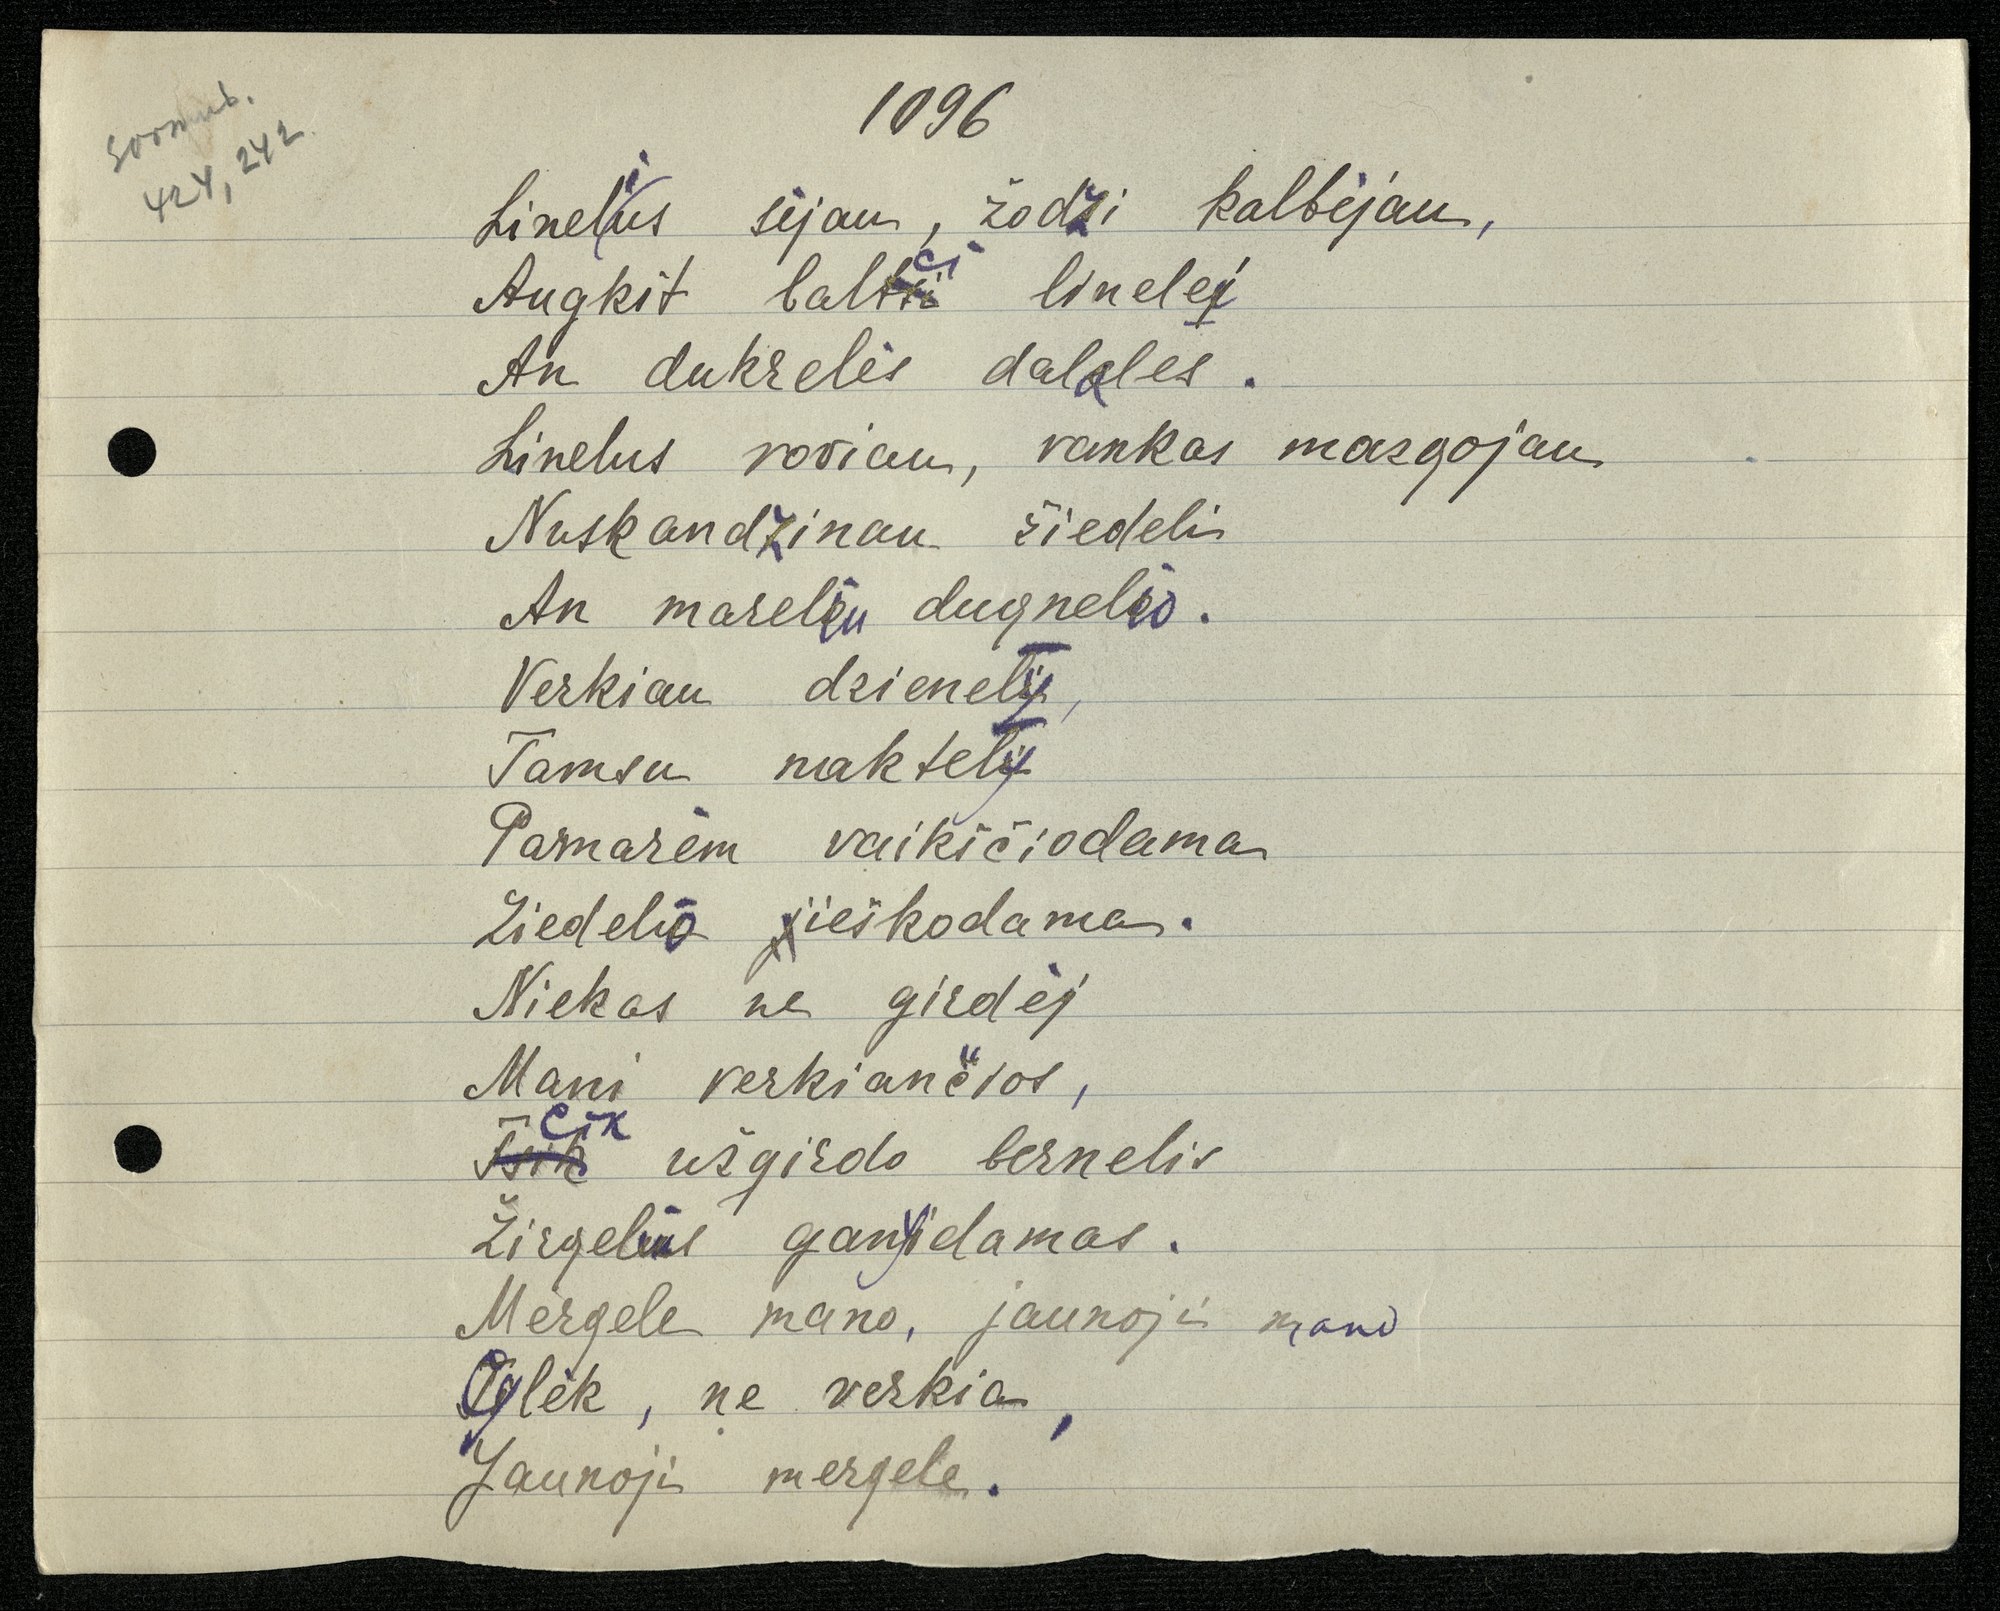 424, 242
1096
Lineliùs sėjau, žodzi kalbėjau,
Augkit balci linelei
An dukrelės daleles.
Linelus roviau, rankas mazgojau
Nuskandzinau žiedeli
An mareliu dugnelio.
Verkiau dzienelȳ,
Tamsu naktelȳ
Pamarėm vaikščiodama
Žiedelio ieškodama.
Niekas ne girdėj
Mani verkiančios,
Cik užgirdo bernelis
Žirgelius ganydamas.
Mergele mano, jaunoji mano
Cylėk, ne verkia,
Jaunoji mergele.